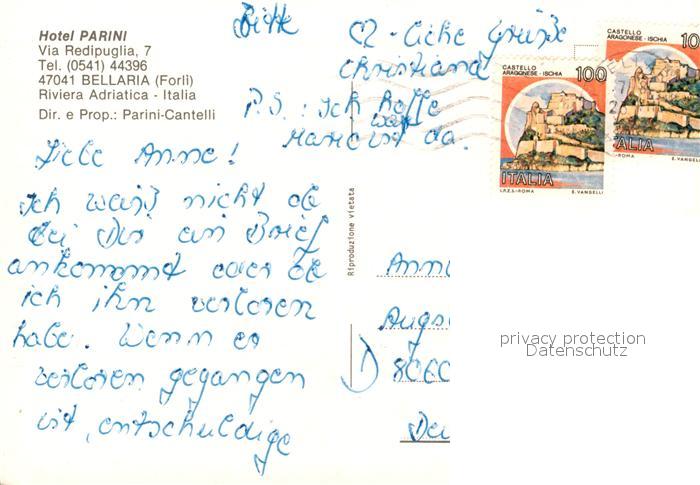 Hotel PARINI
Via Redipuglia, 7
Tel. (0541) 44396
47041 BELLARIA (Forlì)
Riviera Adriatica - Italia
Dir. e Prop.: Parini-Cantelli
Liebe Anne!
Ich weiß nicht ob
bei Dir ein Brief
ankommt oder ob
ich ihn verloren
habe. Wenn er
verloren gegangen
ist, entschuldige
Bitte
♡-liche Grüße
Christiana
P.S.: Ich hoffe
da.
Riproduzione vietata
CASTELLO
ARAGONESE - ISCHIA
100
ITALIA
I.P.Z.S. - ROMA E. VANGELLI
CASTELLO
ARAGONESE - ISCHIA
10
ALIA
-ROMA E. VANGELLI
Ann
Augs
D 8060
Deu
privacy protection
Datenschutz